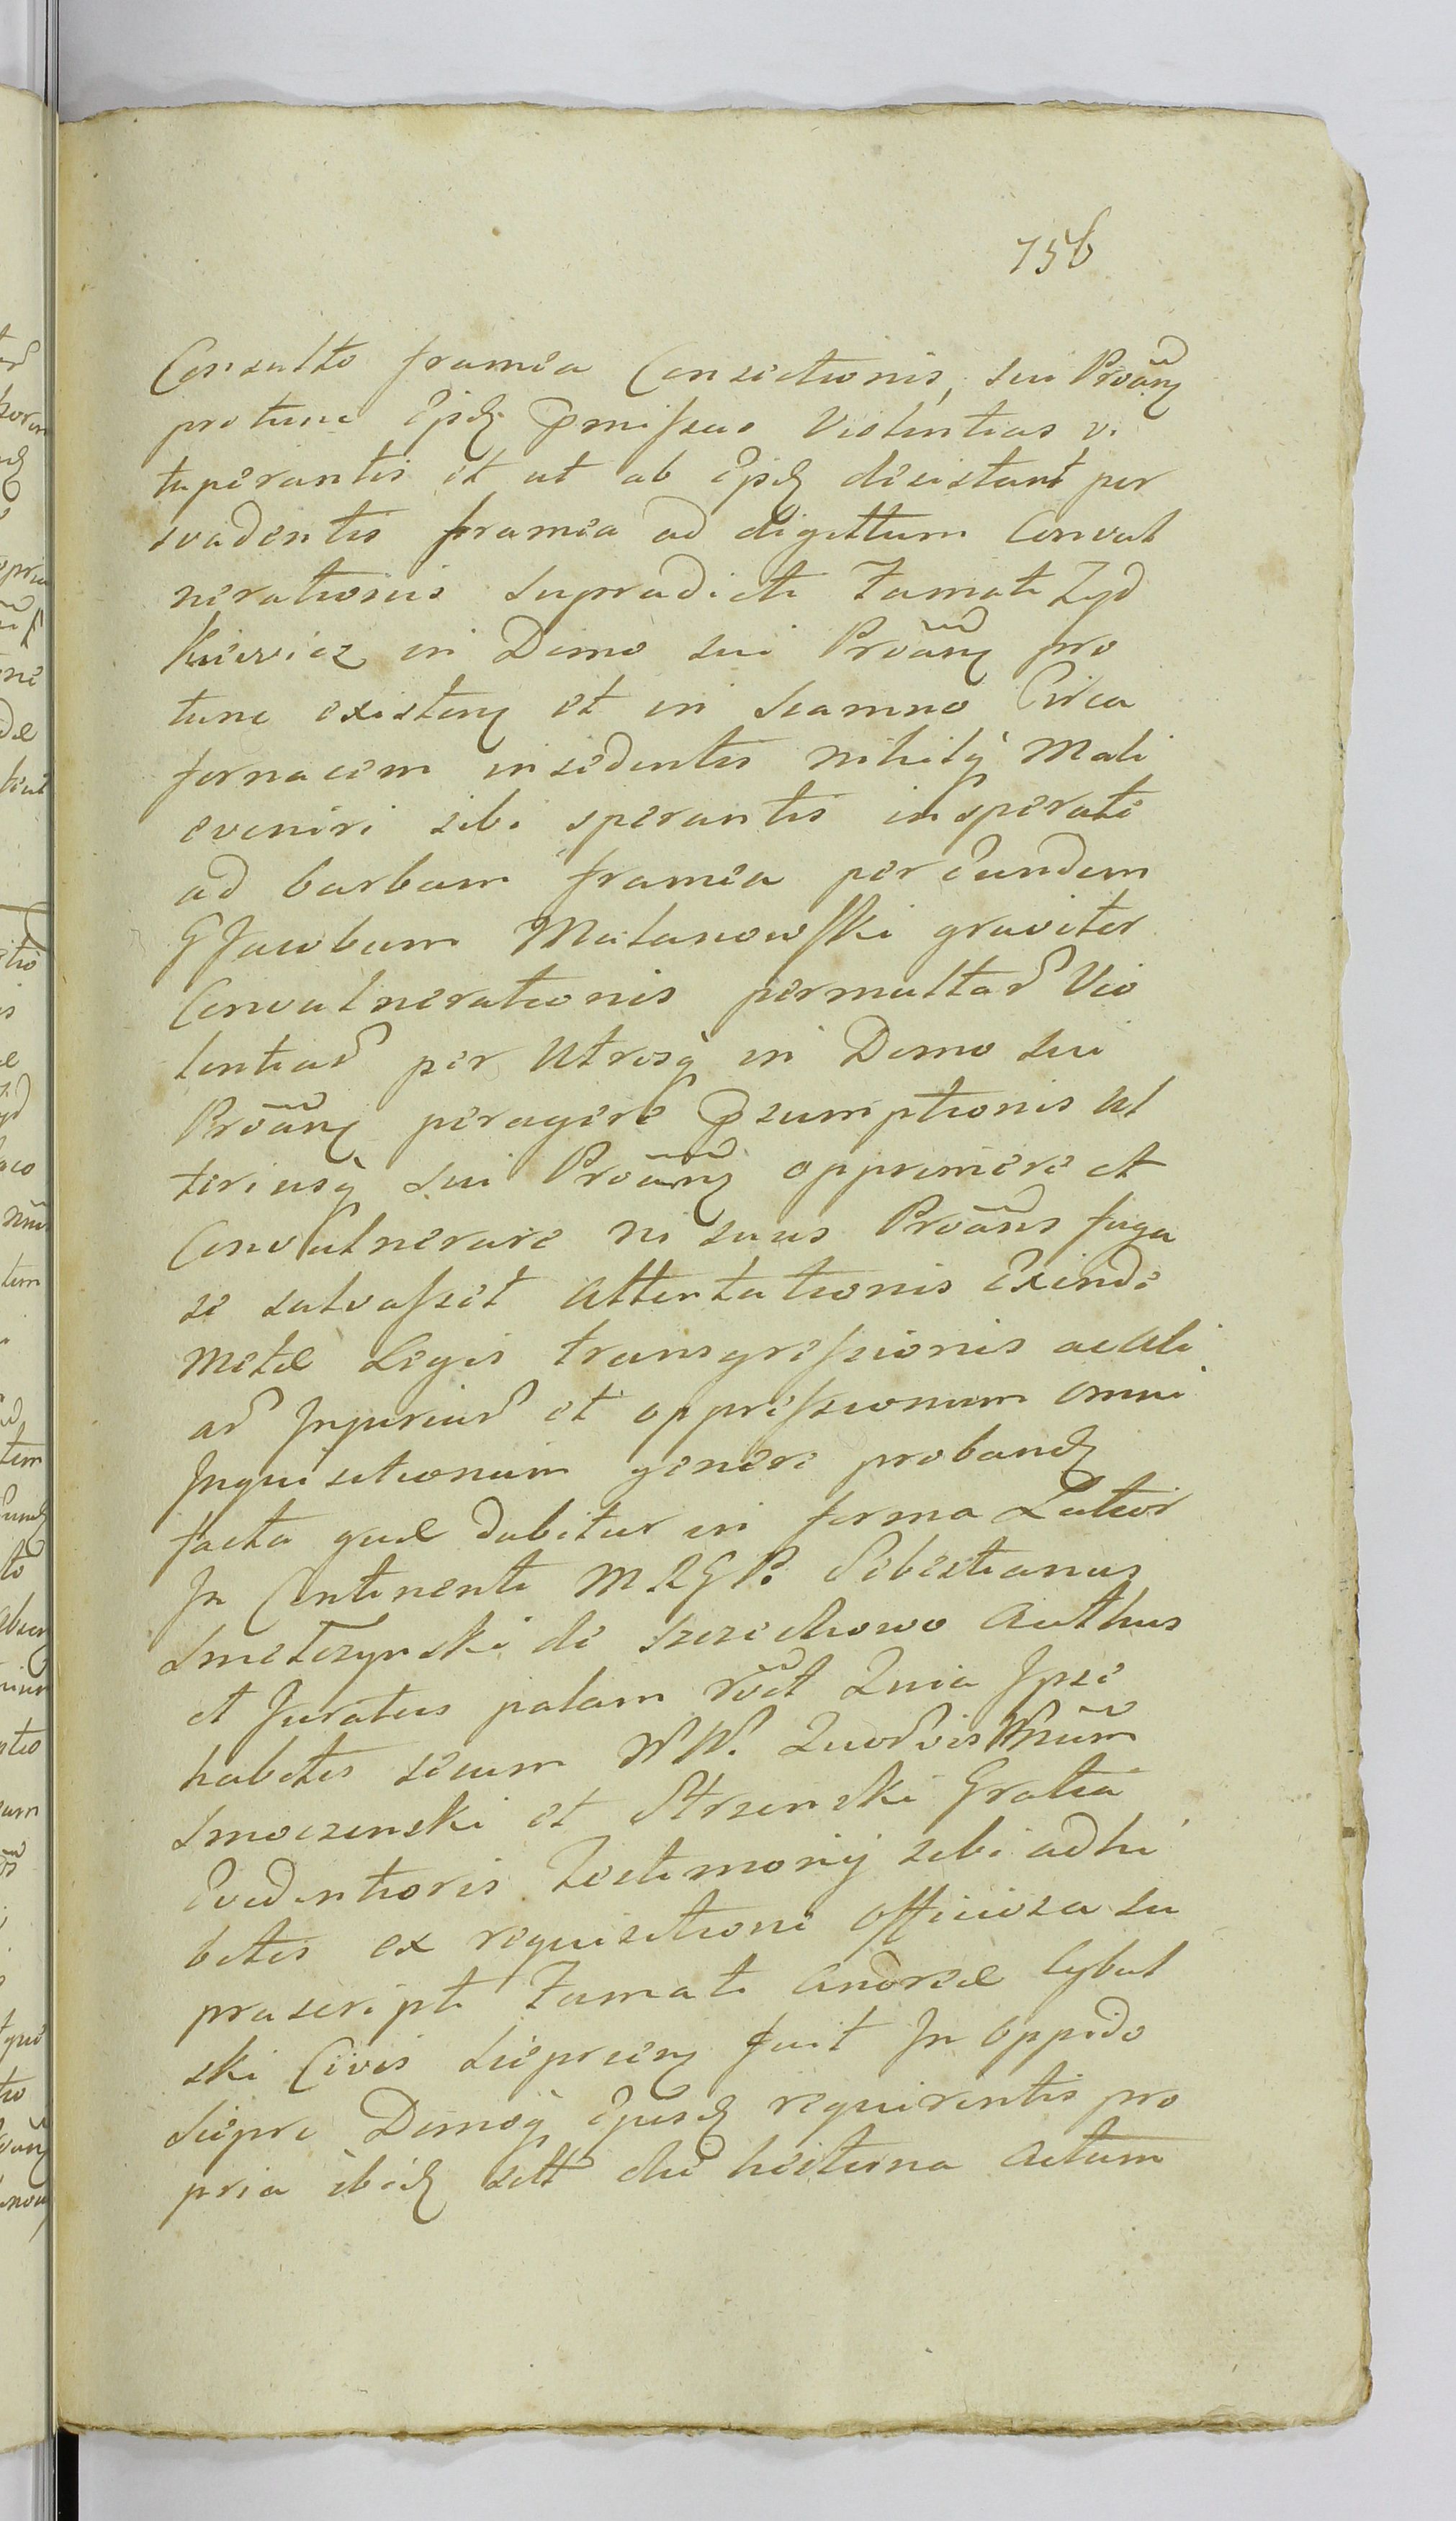 756
Consulto framea Consectionis, sui Prõãnſ
protunc Ejsdẽ pmiſsas Violentias vi
tuperantis et ut ab Ejsdẽ desistant per
svadentis framea ad digittum Convul
nerationis Supradicti Famati Zyd
kiewicz in Domo sui Prõãnſ pro
tunc existenſ et in Scamno Circa
fornacem insedentis nihilqꝫ Mali
eveniri sibi sperantis insperate
ad barbam framea per Eundem
G Jacobum Malanowſki graviter
Convulnerationis permultar Vio
lentiar per Utrosqꝫ in Domo sui
Prõãnſ peragere psumptionis Ul
teriusqꝫ sui Prõãnſ opprimere et
Convulnerare ni suus Prõãns fuga
se salvaſset Attentationis Exinde
Metæ Legis transgreſsionis ac ali
ar Injuriar et oppreſsionum omni
Inquisitionum genere proband
facta quæ dabitur in forma Latior
In Continenti M R G P. Sebestianus
Smetczynski de Szczechowo Authus
et Juratus palam rõct Quia Ipse
habitis secum W W. Quorvis Wnũm
Smoczenski et Strzenski Gratia
Evidentioris Testimonij sibi adhi
bitis ex requisitione officiosa su
prascripti Famati Andreæ Cybul
ski Civis Siepscenſ fuit In oppido
Siepre Domoqꝫ Ejusdẽ requirentis pro
pria ibidẽ sctt die hesterna Actum